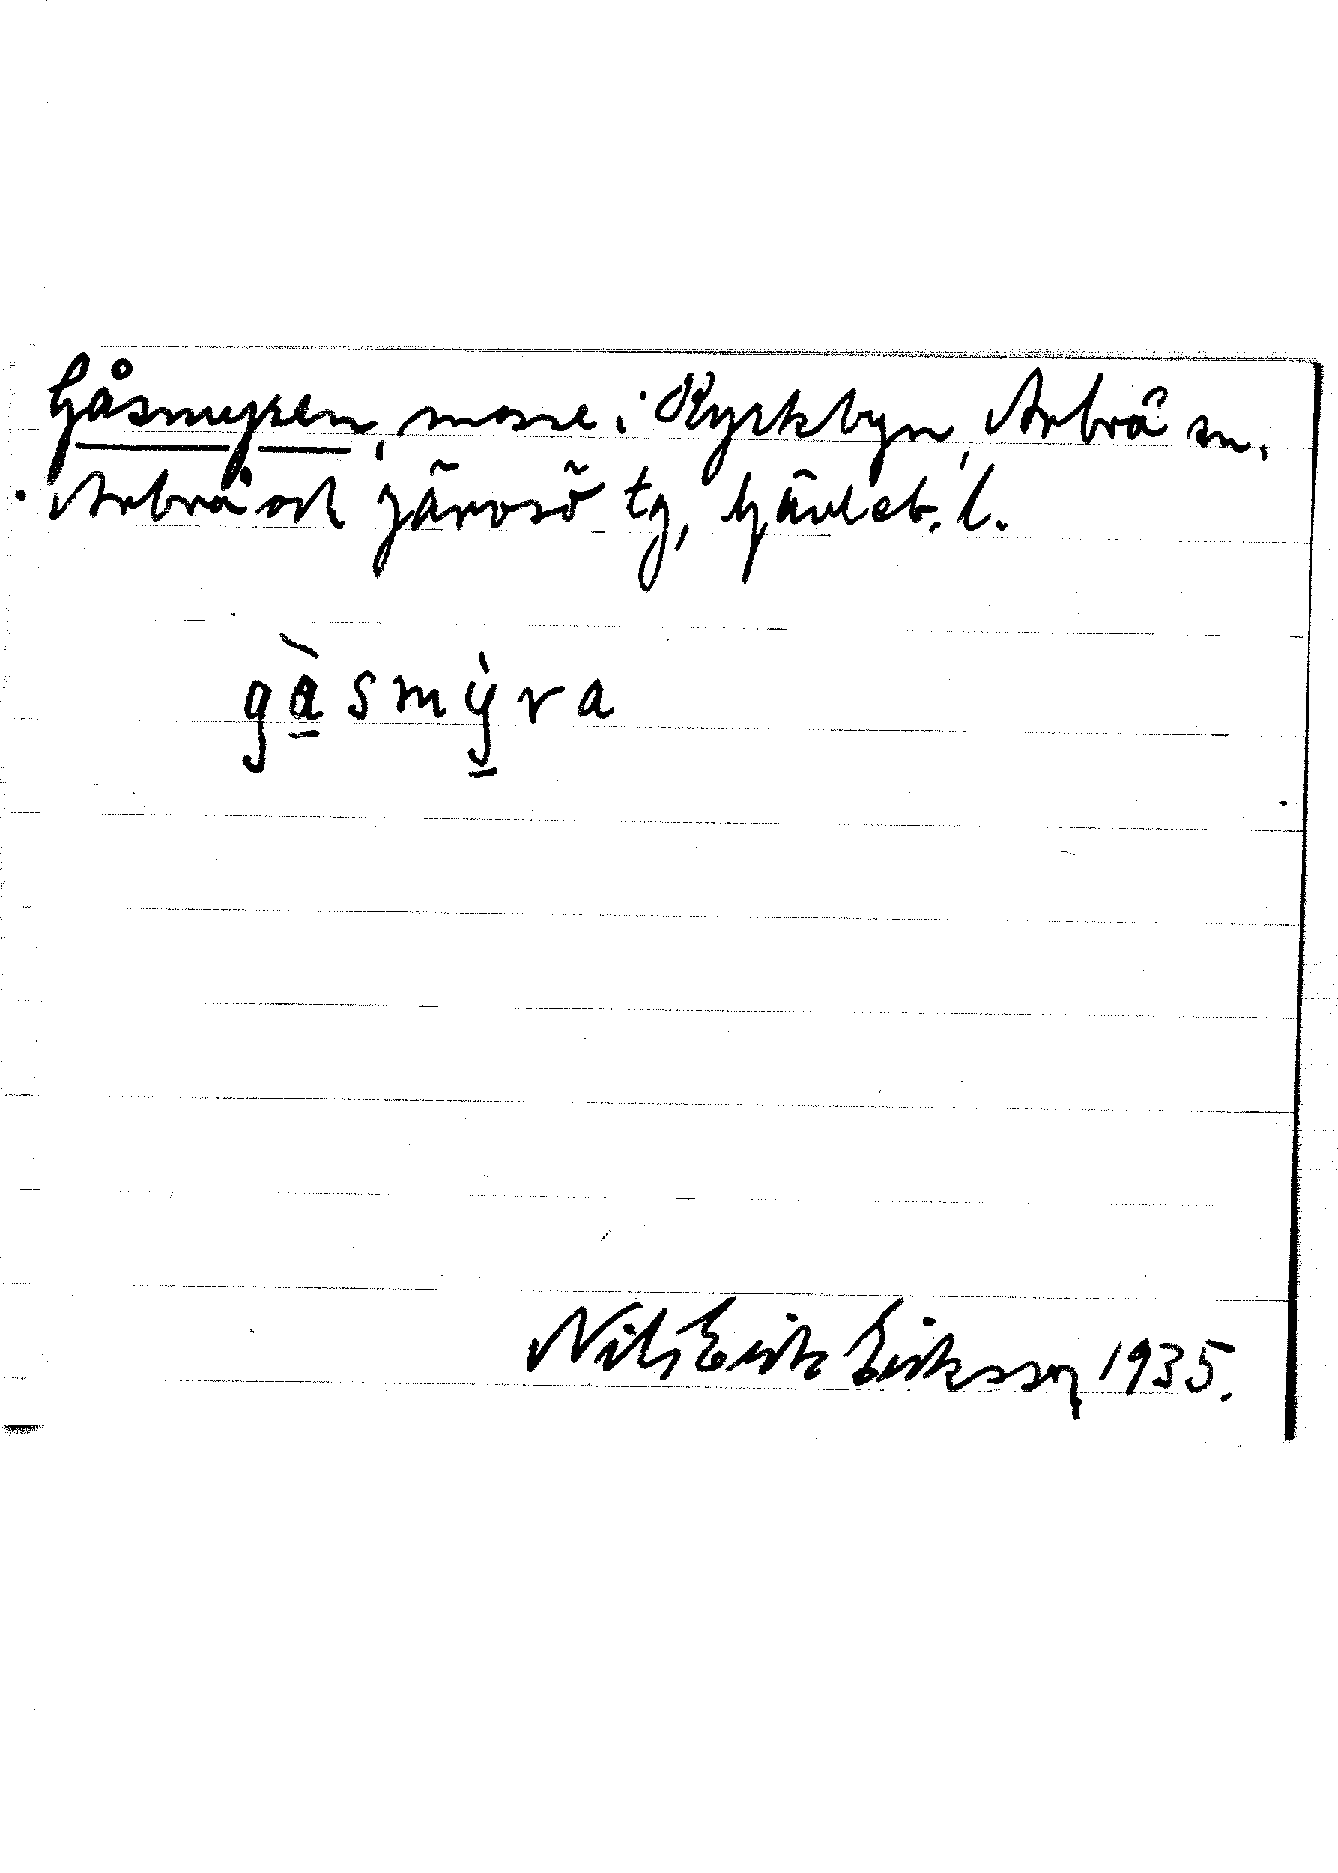 Gåsmyren, mosse i Kyrkbyn, Arbrå sn.
Arbrå och Järvsö tg, Gävleb. l.
gàsmỳra
Nils Erik Eriksson 1935.